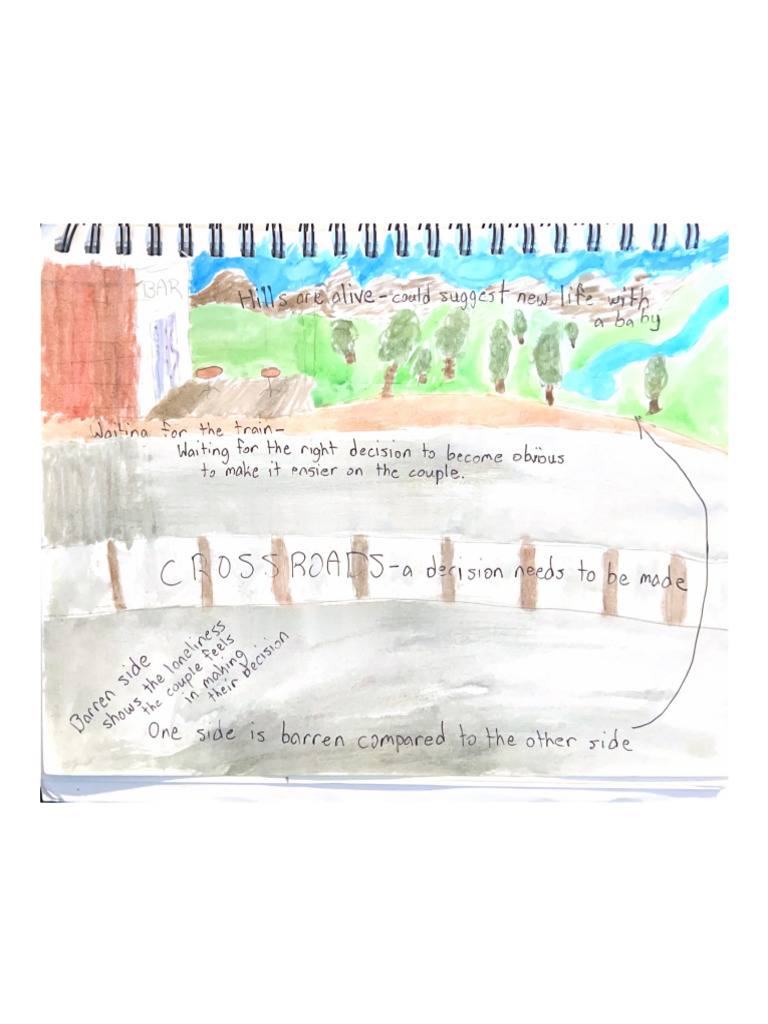 BAR
Hills are alive - could suggest new life with
a baby
Waiting for the train -
Waiting for the right decision to become obvious
to make it easier on the couple.
CROSSROADS - a decision needs to be made
Barren side
shows the loneliness
the couple feels
in making
their decision
One side is barren compared to the other side